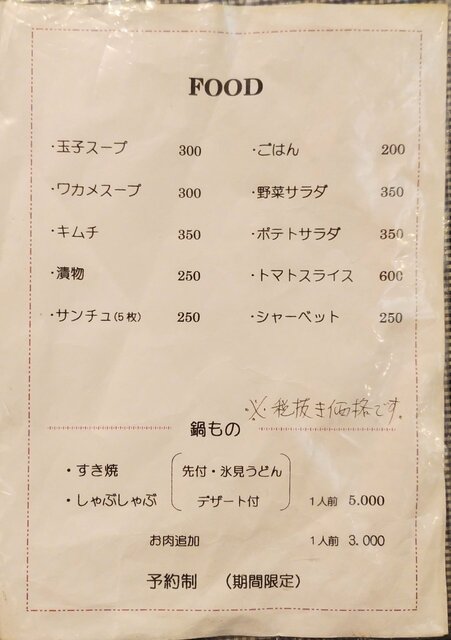 FOOD
・玉子スープ 300
・ワカメスープ 300
・キムチ 350
・漬物 250
・サンチュ(5枚) 250
・ごはん 200
・野菜サラダ 350
・ポテトサラダ 350
・トマトスライス 600
・シャーベット 250
・※・税抜き価格です。
鍋もの
・すき焼 先付・氷見うどん
・しゃぶしゃぶ デザート付 1人前 5.000
お肉追加 1人前 3.000
予約制 (期間限定)